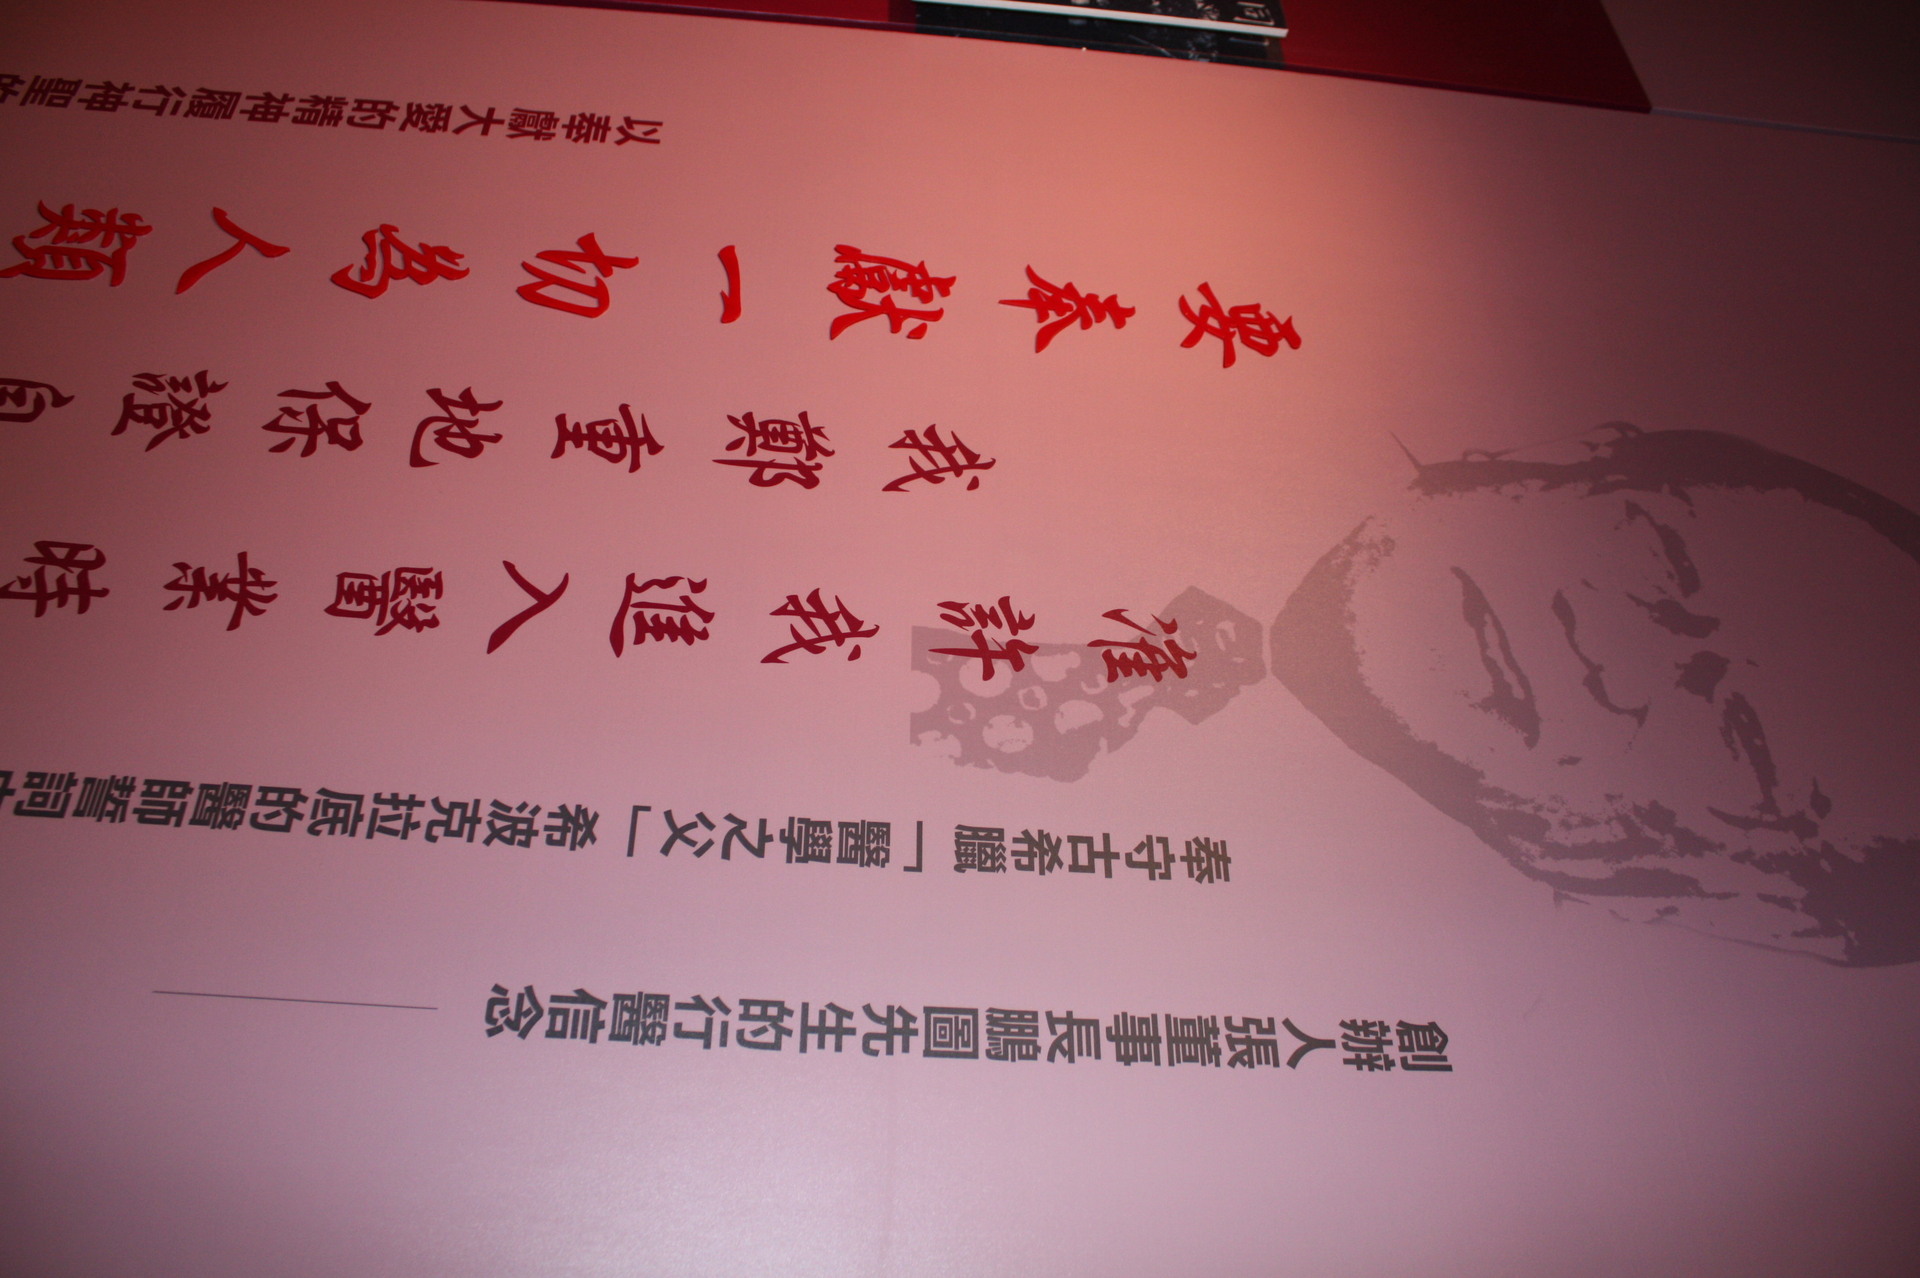 創辦人張董事長鵬圖先生的行醫信念
奉守古希臘「醫學之父」希波克拉底的醫師誓詞
准許我進入醫業時
我鄭重地保證自
要奉獻一切為人類
以奉獻大愛的精神履行神聖的